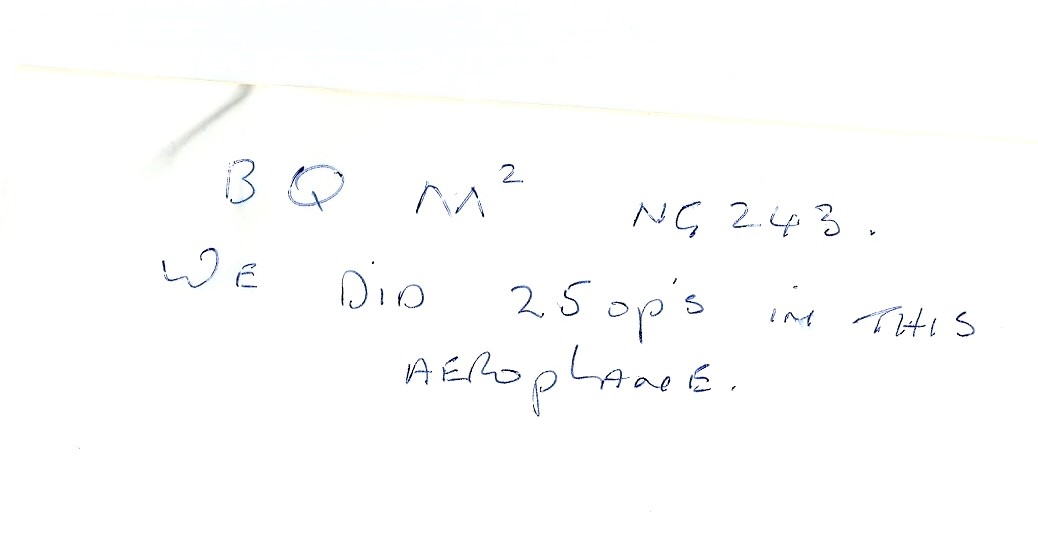 BQ M² NG 243.
WE DiD 25 op's in THIS
AEROplANE.